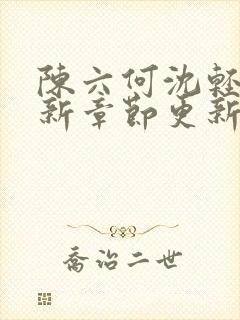 陳六何沈輕
新章節更新
喬治二世